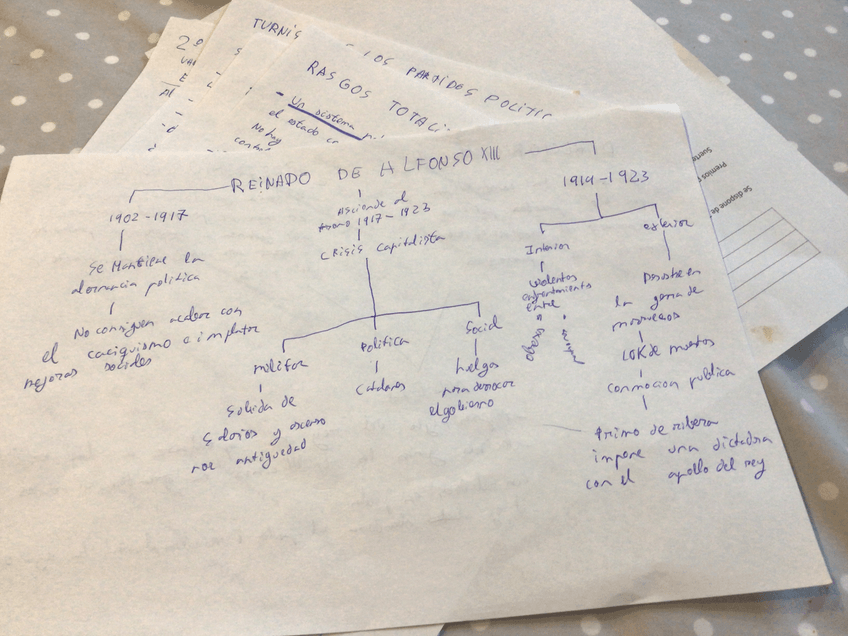 TURNIS
LOS PARTIDOS POLITI
RASGOS TOTALI
- Un sistema
el estado
No hay
2º
Premios
Suerte
Se dispone de
REINADO DE ALFONSO XIII
1902-1917
Se Mantiene la
política
No consiguen acabar con
el caciquismo e implantar
mejoras sociales
Asciende al
1917-1923
CRISIS Capitalista
militar
Subida de
Salarios y ascenso
por antiguedad
Política
Catalanes
Social
huelgas
para derrocar
el gobierno
1919-1923
Interior
violentos
enfrentamientos
entre
obreros
exterior
Desastre en
la guerra de
marruecos
10K de muertos
conmocion publica
Primo de ribera
impone una dictadura
con el apollo del rey